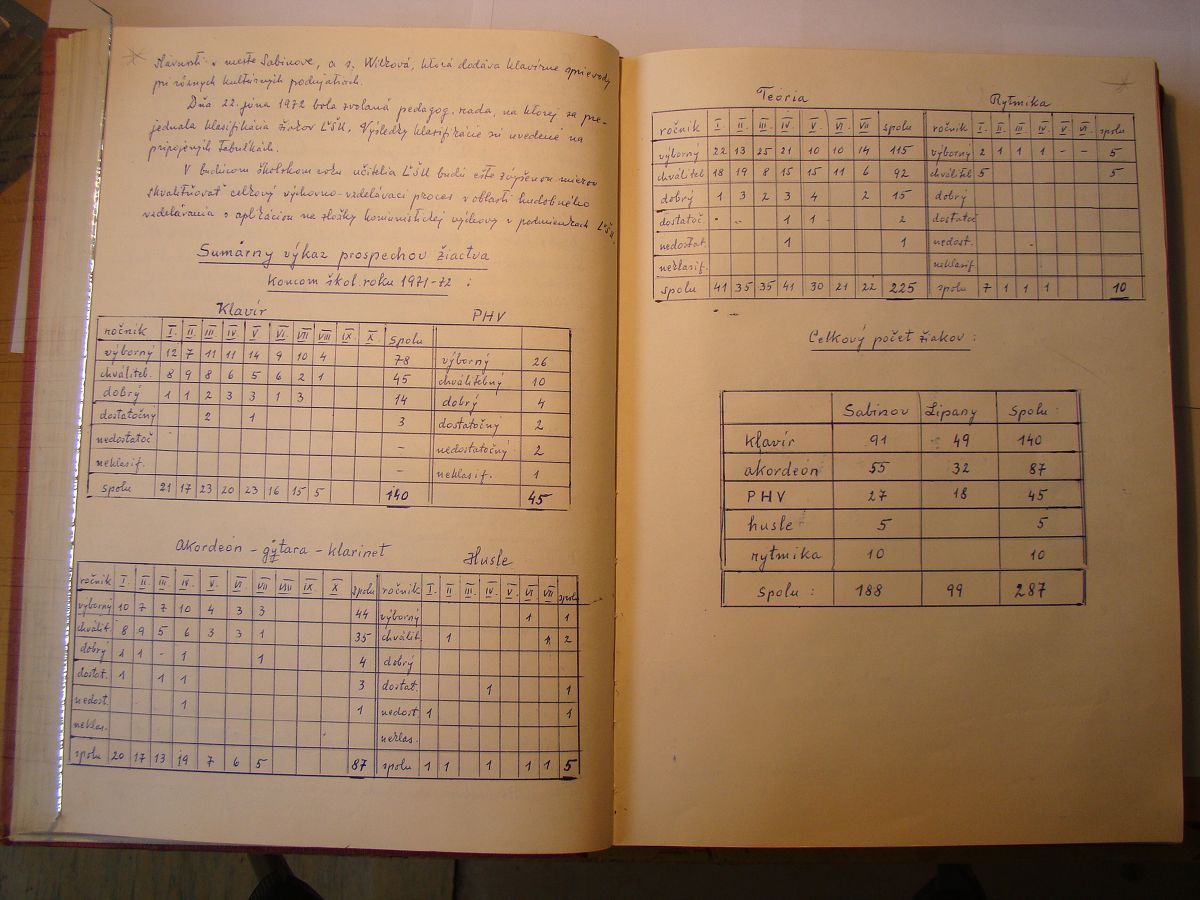 slávnosti v meste Sabinove, a s. Wilková, ktorá dodáva klavírne sprievody
pri rôznych kultúrnych podujatiach.
Dňa 22. júna 1972 bola zvolaná pedagog. rada, na ktorej sa pre-
jednala klasifikácia žiakov ĽŠU. Výsledky klasifikácie sú uvedené na
pripojených tabuľkách.
V budúcom školskom roku učitelia ĽŠU budú ešte zvýšenou mierou
skvalitňovať celkový výchovno-vzdelávací proces v oblasti hudobného
vzdelávania s aplikáciou na zložky komunistickej výchovy v podmienkach ĽŠU.
Sumárny výkaz prospechov žiactva
koncom škol. roku 1971-72 :
Klavír PHV
ročník I. II III IV V VI VII VIII IX X spolu
výborný 12 7 11 11 14 9 10 4 78 výborný 26
chváliteb. 8 9 8 6 5 6 2 1 45 chválitebný 10
dobrý 1 1 2 3 3 1 3 14 dobrý 4
dostatočný 2 1 3 dostatočný 2
nedostatoč - nedostatočný 2
neklasif. - neklasif. 1
spolu 21 17 23 20 23 16 15 5 140 45
Akordeón - gytara - klarinet Husle
ročník I. II. III IV. V. VI VII VIII IX X spolu ročník I. II III IV. V. VI VII spolu
výborný 10 7 7 10 4 3 3 44 výborný 1 1
chválit. 8 9 5 6 3 3 1 35 chválit. 1 1 2
dobrý 1 1 - 1 1 4 dobrý
dostat. 1 1 1 3 dostat. 1 1
nedost. 1 1 nedost 1 1
neklas. neklas.
spolu 20 17 13 19 7 6 5 87 spolu 1 1 1 1 1 5
Teória Rytmika
ročník I. II. III. IV V. VI. VII spolu ročník I. II. III. IV V VI spolu
výborný 22 13 25 21 10 10 14 115 výborný 2 1 1 1 - - 5
chválitel 18 19 8 15 15 11 6 92 chválitel 5 5
dobrý 1 3 2 3 4 2 15 dobrý
dostatoč. 1 1 2 dostatoč
nedostat. 1 1 nedost.
neklasif. neklasif
spolu 41 35 35 41 30 21 22 225 spolu 7 1 1 1 10
Celkový počet žiakov :
Sabinov Lipany Spolu :
klavír 91 49 140
akordeon 55 32 87
PHV 27 18 45
husle 5 5
rytmika 10 10
Spolu : 188 99 287